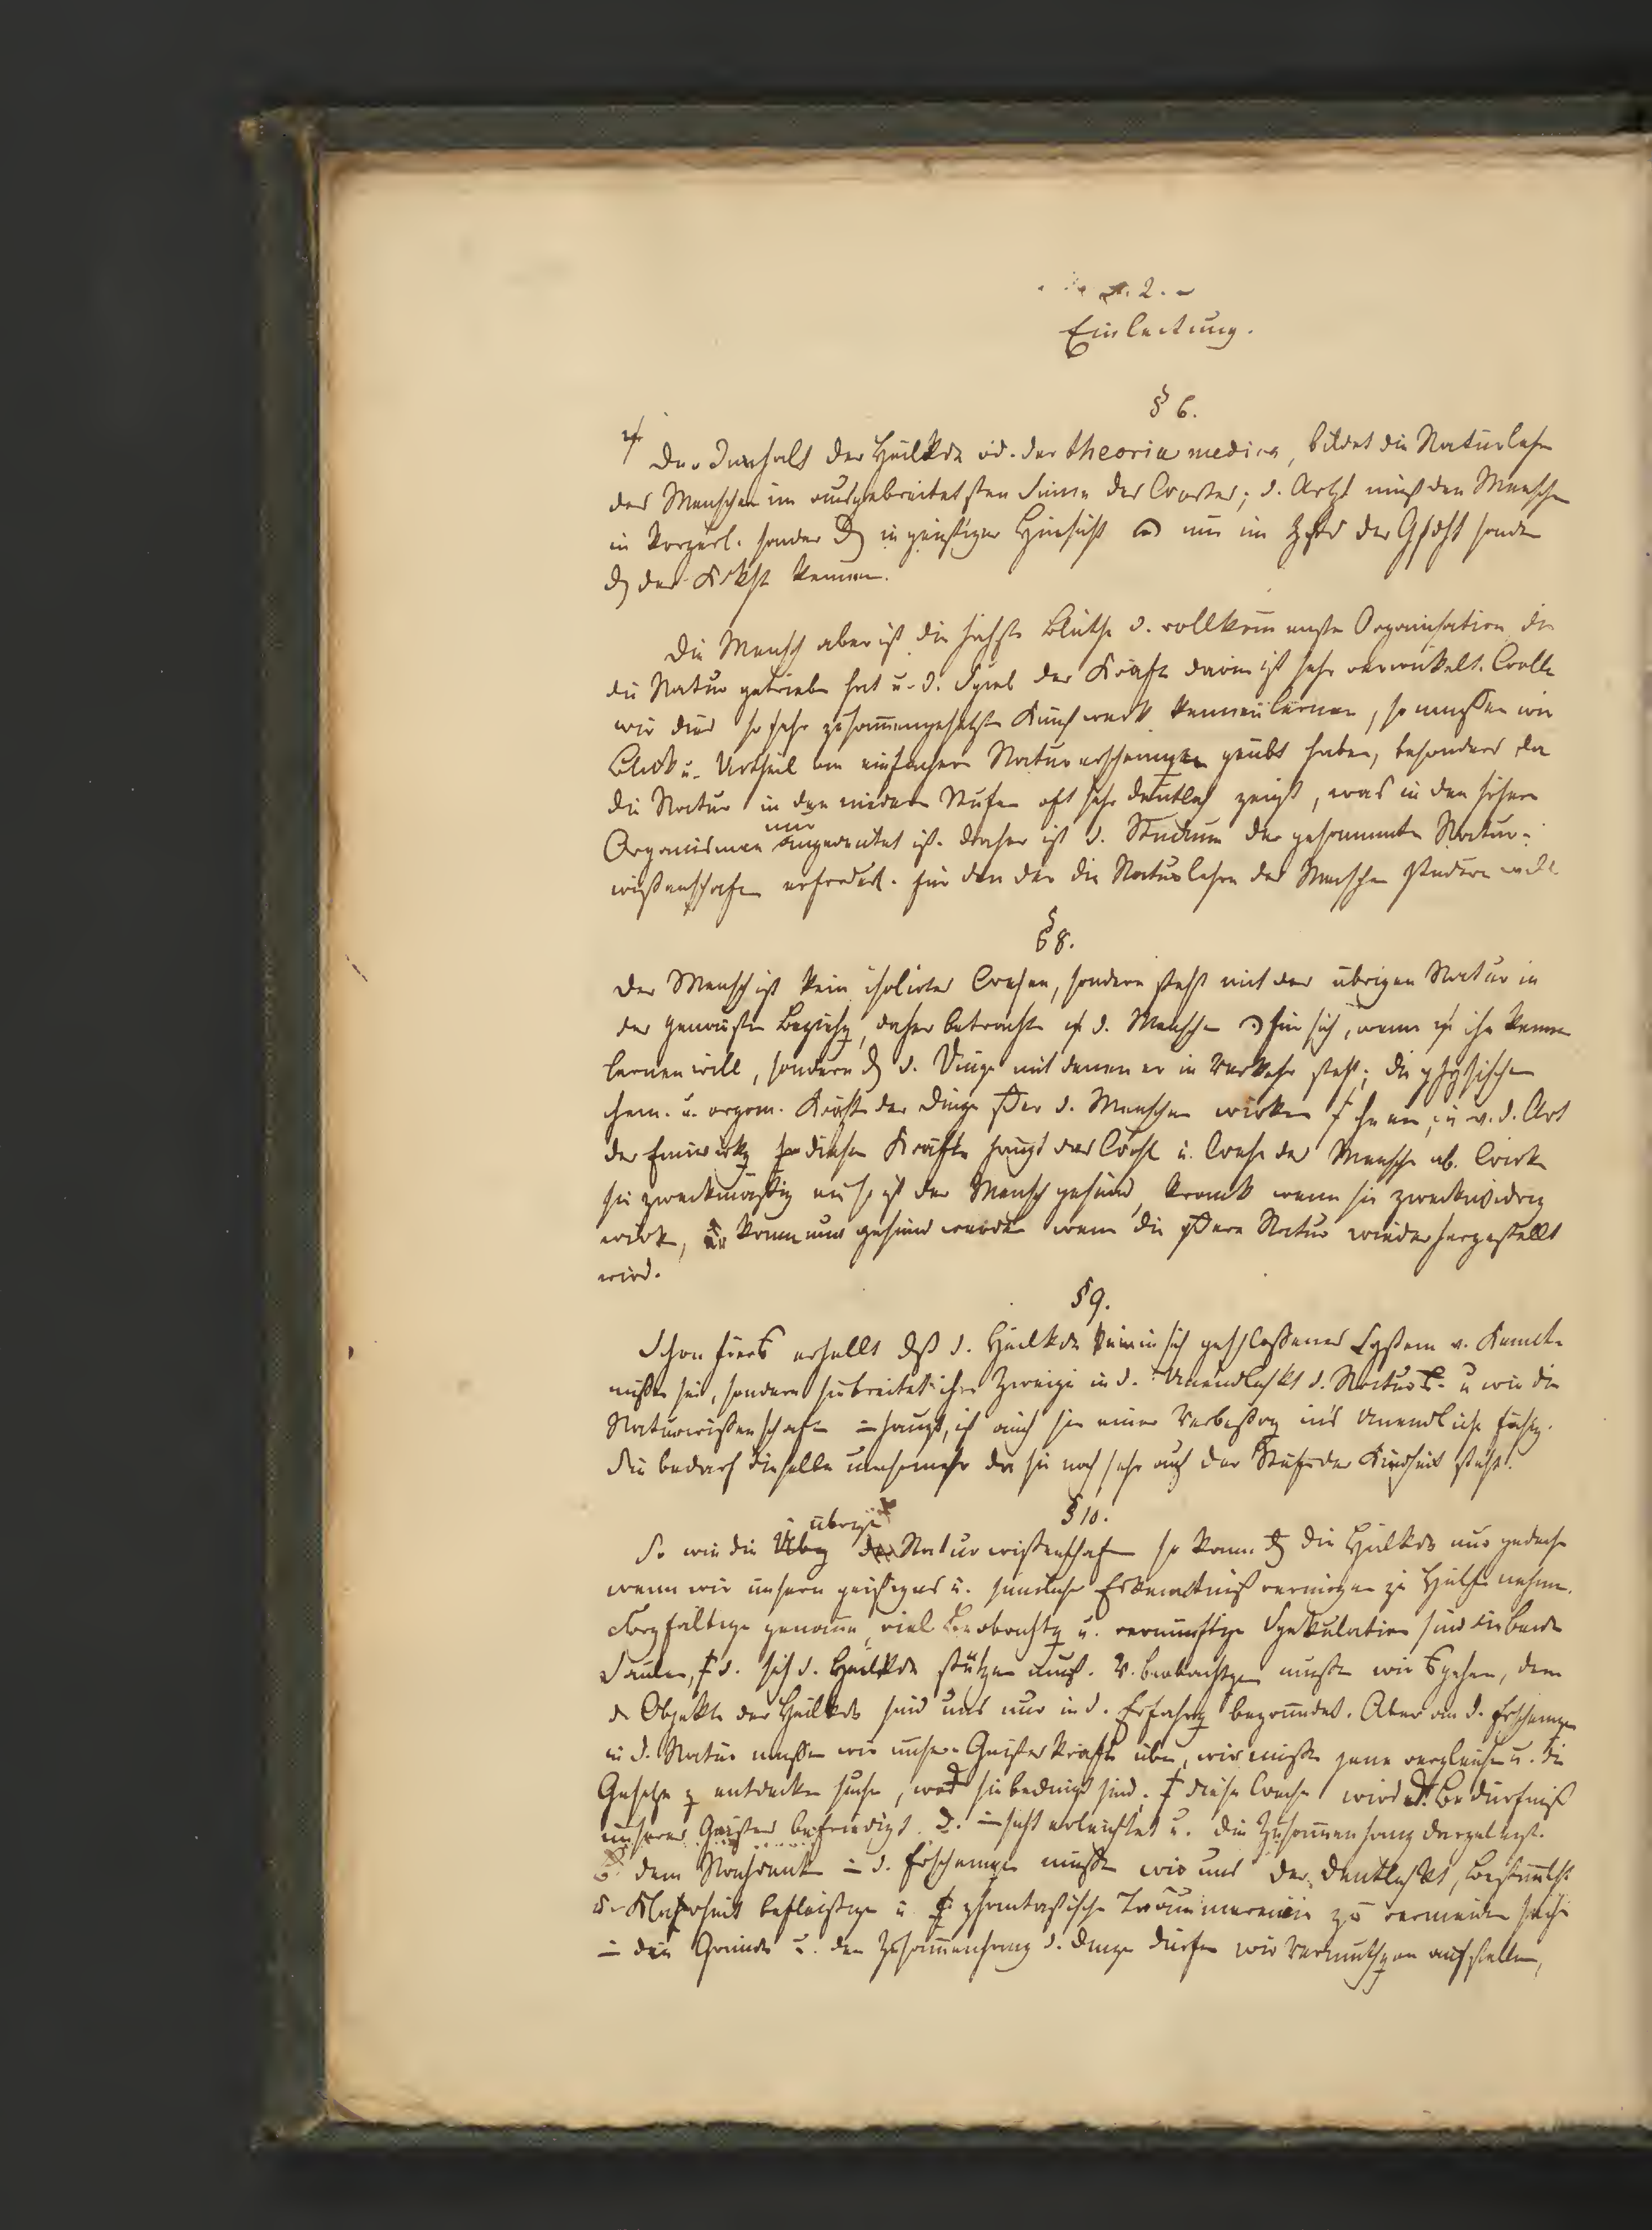 2.
Einleitung.
§ 6.
Der Innhalt der Heilkde od. der theoria medica, bildet die Naturlehre
des Menschen im ausgebreitetsten Sinne des Wortes; d. Arzt muß den Menschen
in körperl. sonder in geistiger Hinsicht nur im der sonder
der kennen.
Die Mensch aber ist die höchste Blüthe d. vollkommenste Organisation die
die Natur getrieben hat u. d. Spiel der Kräfte darin ist sehr verwickelt. Wollen
wir dies so sehr zusammengesetzte Kunstwerk kennen lernen, so mussen wir
Blick u. Urtheil an einfachern Naturerscheingen geübt haben, besonders da
die Natur in den niedern Stufen oft sehr deutlich zeigt, was in den höhern
Organismen nur angedeutet ist. Daher ist d. Studium der gesammten Natur-
wißenschaften erfordert. für den der die Naturlehre des Menschen studiren will
§ 8.
Der Mensch ist kein isolirtes Wesen, sondern steht mit der übrigen Natur in
der genausten Beziehg, daher betrachte d. Menschen für sich, wenn ihn kennen
lernen will, sondern d. Dinge mit denen er in Verkehr steht; die physischen
chem. u. organ. Kräfte der Dinge d. Menschen wirken ein, v. d. Art
der Einwirkg dieser Kräfte hängt das Wohl u. Wehe des Menschen ab. Wirken
sie zweckmäßig so ist der Mensch gesund, krank wenn sie zweckwidrig
wirken, kann nur gesund werden wenn die Natur wieder hergestellt
wird.
§ 9.
Schon erhellt dß d. Heilkde kein in sich geschloßenes System v. Kennt-
nißen sei, sondern sie breitet ihre Zweige in d. Unendlichkt d. Natur u wie die
Naturwißenschaften haupt, ist auch sie einer Verbeßerg in's Unendliche fähig.
Sie bedarf dieselbe umsomehr da sie noch sehr auf der Stufe der Kindheit steht.
§ 10.
So wie die übrige Naturwißenschaften so kann die Heilkde nur gedeihen
wenn wir unsern geistiges u. sinnliche Erkenntnißvermögen zu Hülfe nehmen.
Sorgfältige genaue, viel Beobachtg u. vernünftige Spekulation sind die beiden
Säulen, d. sich d. Heilkde stützen muß. V. Beobachtgen mußen wir gehen, denn
d. Objekte der Heilkde sind uns nur in d. Erfahrg begründet. Aber an d. Erscheingen
in d. Natur mußen wir unsere Geisteskräfte üben, wir mußen jene vergleichen u. die
Gesetze z entdecken suchen, sie bedingt sind. diese Weise wird Bedürfniß
unseres Geistes befriedigt. d. sicht erleichtert u. die Zusammenhang dargelegt.
dem Nachdenken d. Erscheingen mußen wir uns der Deutlichkt, Bestimtht
befleißigen u phantastische Träumereien zu vermeiden suchen
den Grund u. den Zusammenhang d. Dinge dürfen wir Vermuthgen aufstellen,